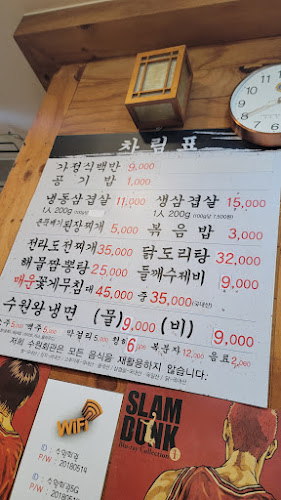 차림표
가정식백반 9,000
공기밥 1,000
냉동삼겹살 11,000 생삼겹살 15,000
1人 200g 1人 200g (100g당 7,500원)
뚝배기된장찌개 5,000 볶음밥 3,000
전라도전찌개 35,000 닭도리탕 32,000
해물짬뽕탕 25,000 들깨수제비 9,000
매운꽃게무침 대 45,000 중 35,000 (국내산)
수원왕냉면 (물) 9,000 (비) 9,000
소주 5,000 맥주 5,000 막걸리 5,000 청하 6,000 복분자 12,000 음료 2,000
저희 수원회관은 모든 음식을 재활용하지 않습니다.
WiFi
ID : 수원회관
P/W : 20180514
ID : 수원회관5G
P/W : 20180514
SLAM
DUNK
Blu-ray Collection 1